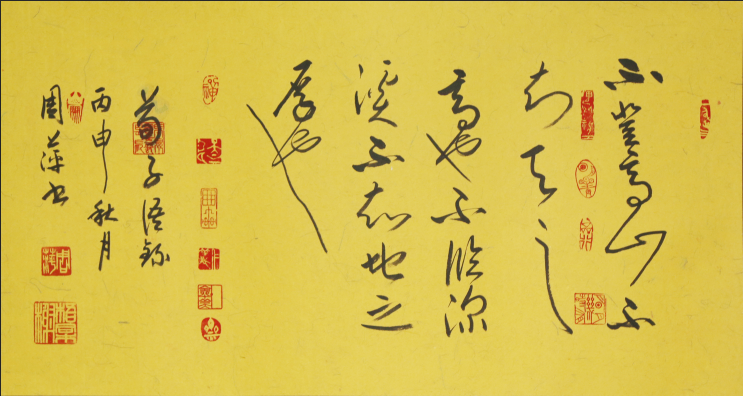 不登高山不
知天之
高也不臨深
溪不知地之
厚也
荀子語錄
丙申秋月
周萍書